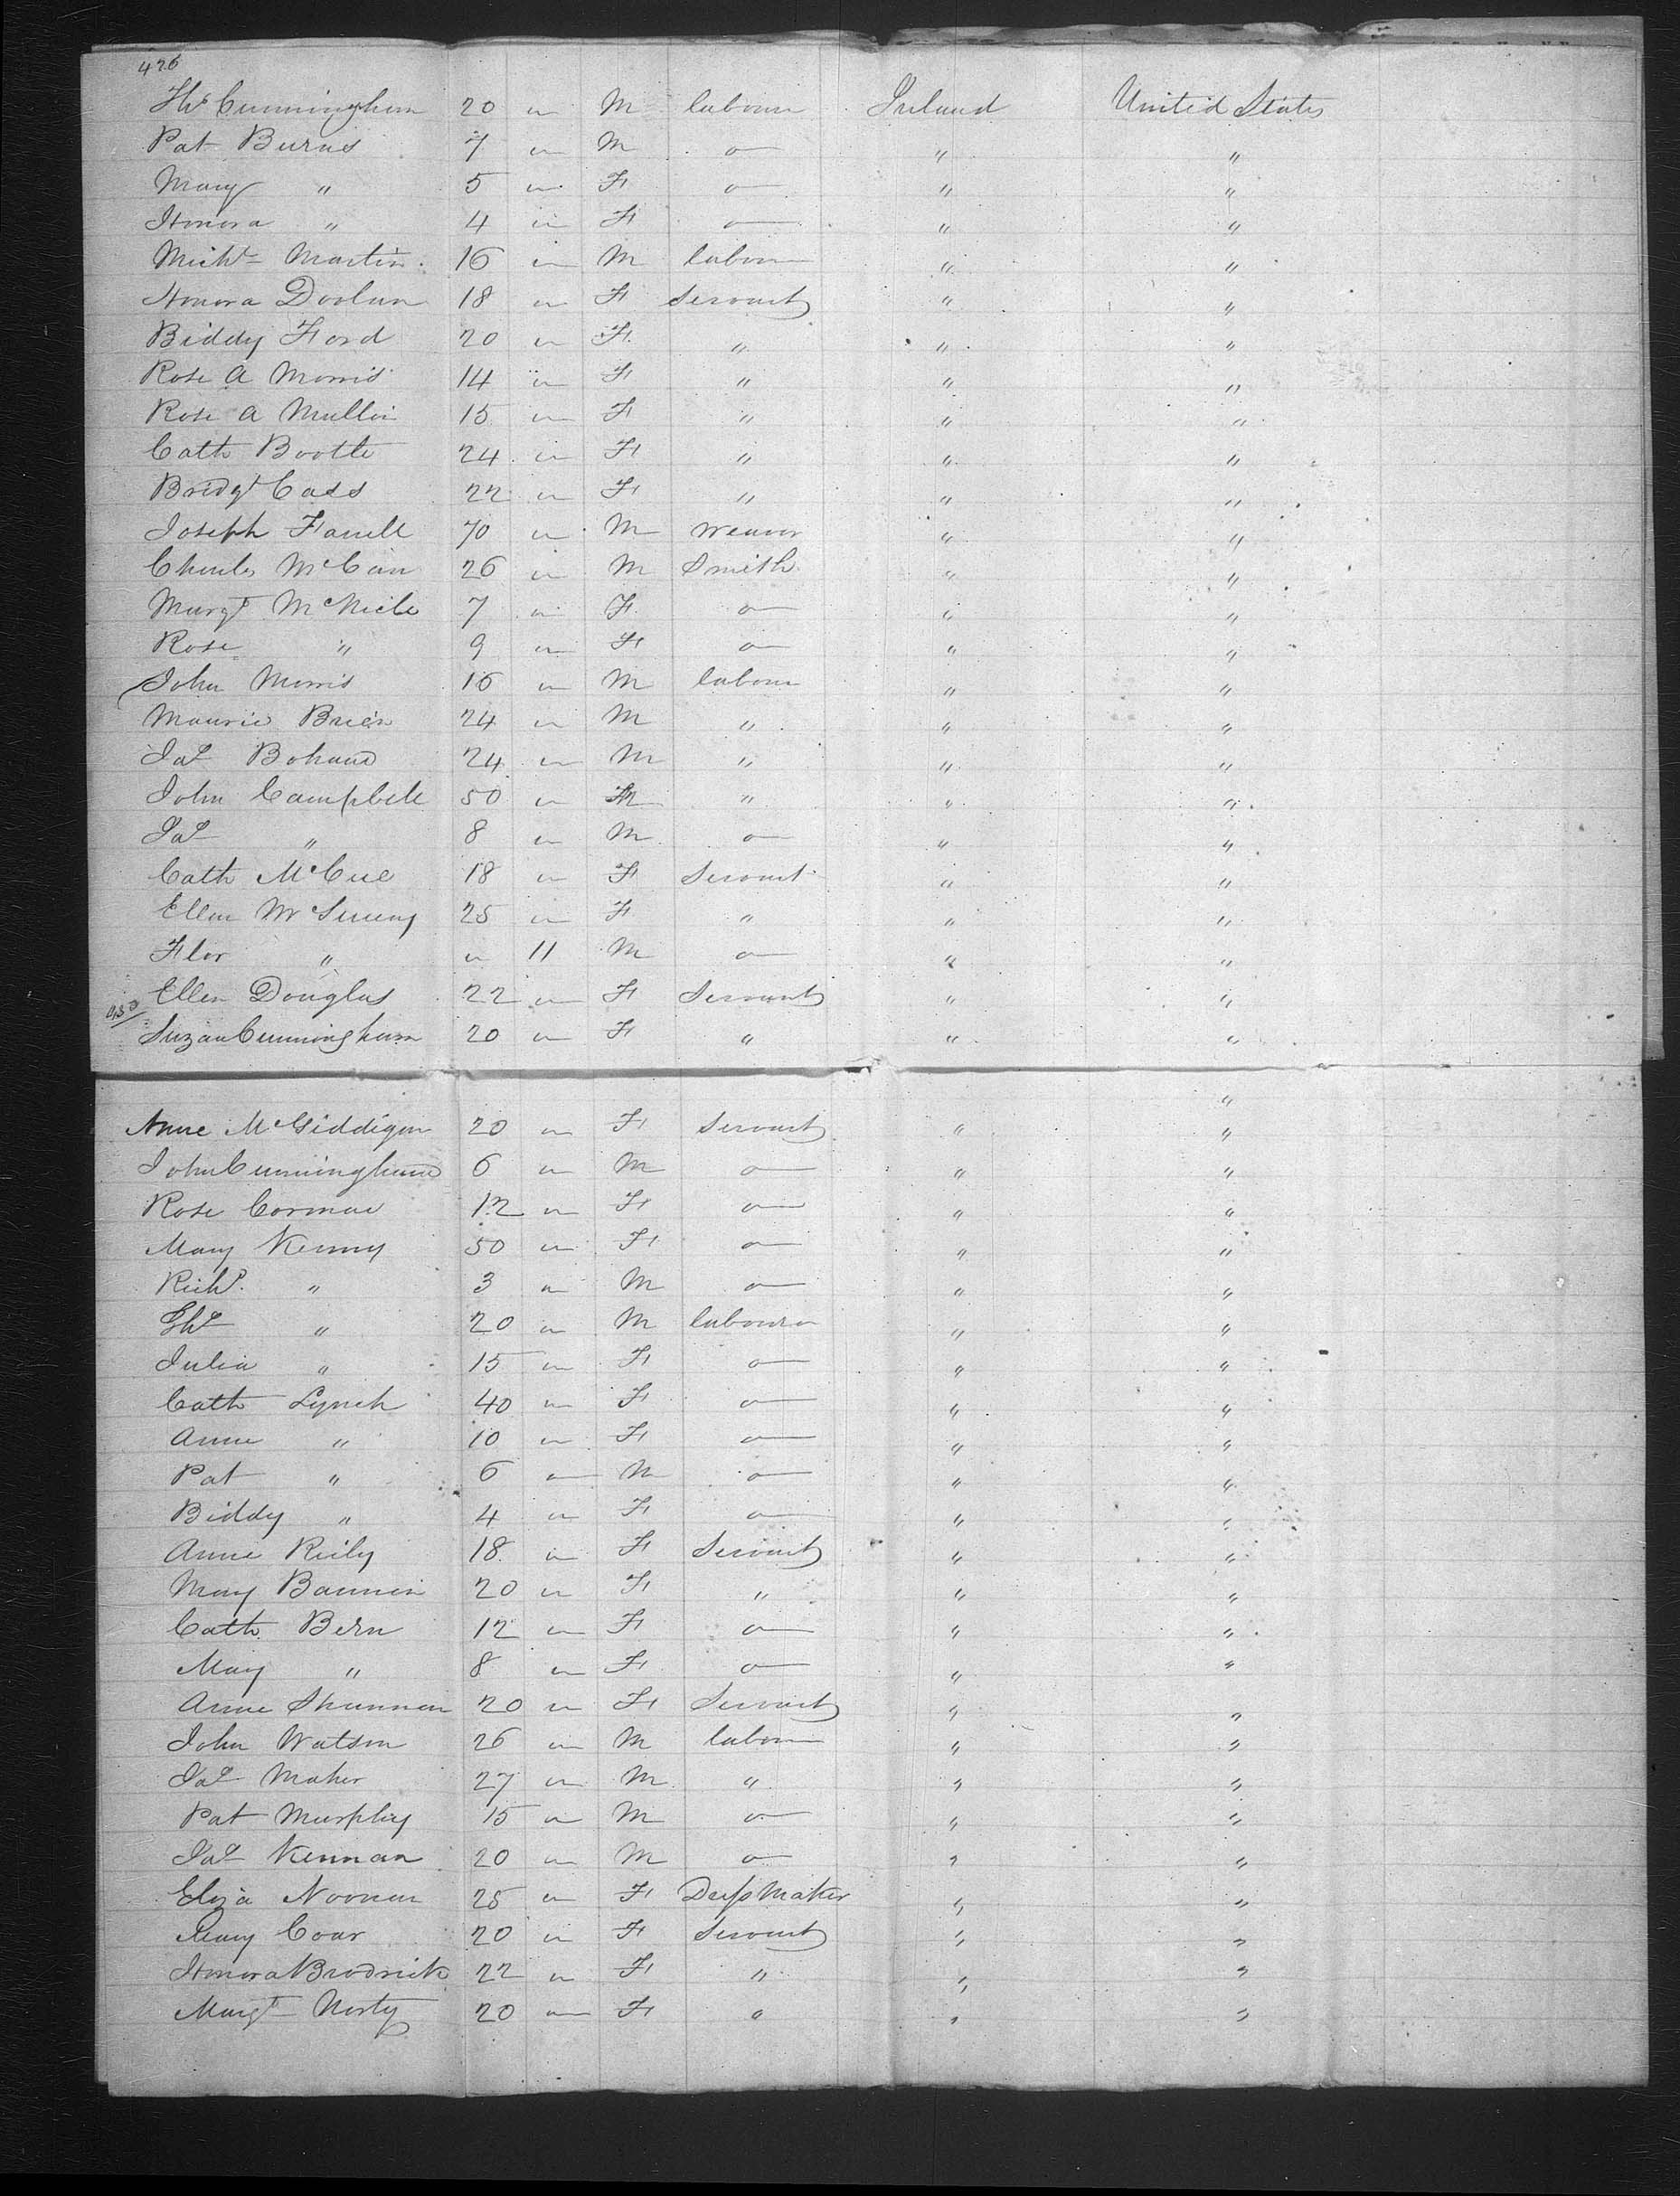 426
Ths Cunningham 20 " M labourer Ireland United States
Pat Burns 7 " M " " "
Mary " 5 " F " " "
Honora " 4 " F " " "
Michl Martin 16 " M labour " "
Honora Doolan 18 " F Servant " "
Biddy Ford 20 " F " " "
Rose A Morris 14 " F " " "
Rose A Mullin 15 " F " " "
Cath Bootle 24 " F " " "
Bridgt Cass 22 " F " " "
Joseph Farrell 70 " M weaver " "
Charles McCan 26 " M Smith " "
Margt McNiele 7 " F " " "
Rose " 9 " F " " "
John Morris 16 " M labour " "
Maurice Brien 24 " M " " "
Jas Bohan 24 " M " " "
John Campbell 50 " M " " "
Jas " 8 " M " " "
Cath McCue 18 " F Servant " "
Ellen McSweeny 25 " F " " "
Flor " " 11 M " " "
Ellen Douglas 22 " F Servant " "
450
Suzan Cunningham 20 " F " " "
"
Anne McGiddigan 20 " F Servant " "
John Cunningham 6 " M " " "
Rose Cormac 12 " F " " "
Mary Kenny 50 " F " " "
Richd " 3 " M " " "
Ths " 20 " M labourer " "
Julia " 15 " F " " "
Cath Lynch 40 " F " " "
Anne " 10 " F " " "
Pat " 6 " M " " "
Biddy " 4 " F " " "
Anne Reily 18 " F Servant " "
Mary Bannin 20 " F " " "
Cath Bern 12 " F " " "
Mary " 8 " F " " "
Anne Shannon 20 " F Servant " "
John Watson 26 " M labour " "
Jas Maher 27 " M " " "
Pat Murphy 15 " M " " "
Jas Kennan 20 " M " " "
Eliza Noonan 25 " F Dress Maker " "
Mary Coar 20 " F Servant " "
Honora Brodrick 22 " F " " "
Margt Norty 20 " F " " "